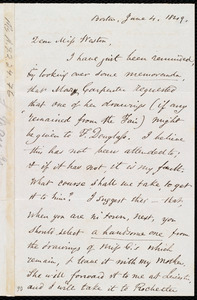 Boston, June 4. 1849.
Dear Miss Weston,
I have just been reminded,
by looking over some memoranda,
that Mary Carpenter requested
that one of her drawings (if any
remained from the Fair) might
be given to F. Douglass. I believe
this has not been attended to;
& if it has not, it is my fault.
What course shall we take to get
it to him? I suggest this - that
when you are in town, next, you
should select a handsome one from
the drawings of Miss C.'s which
remain, & leave it with my mother.
She will forward it to me at Leicester,
and I will take it to Rochester